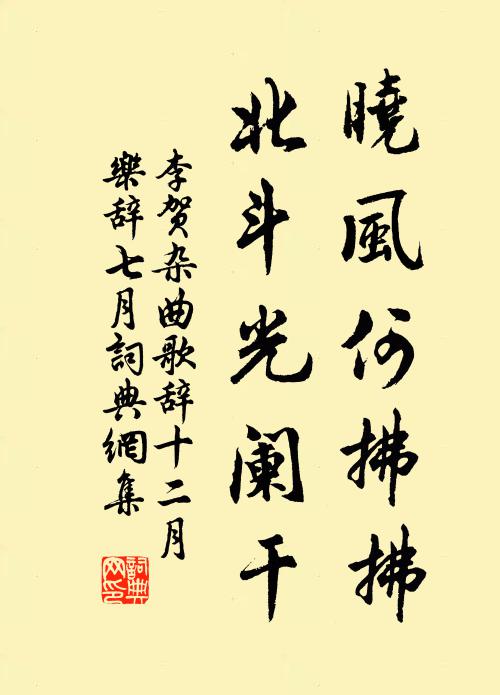 曉風何拂拂
北斗光阑干
李贺杂曲歌辞十二月
樂辞七月詞典網集
詞典网印